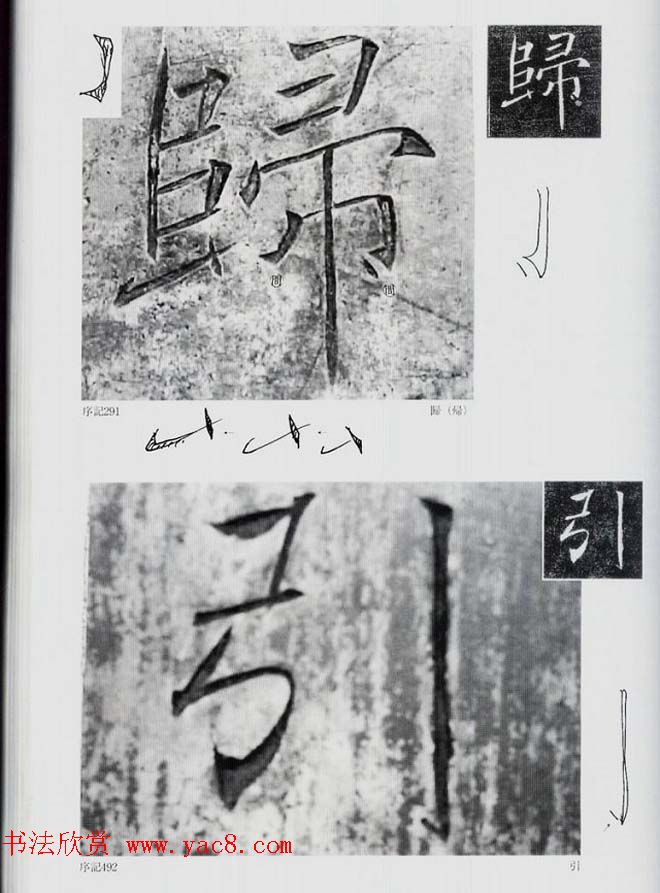 歸
歸
序記291
歸（帰）
引
引
书法欣赏 www.yac8.com
序記492
引